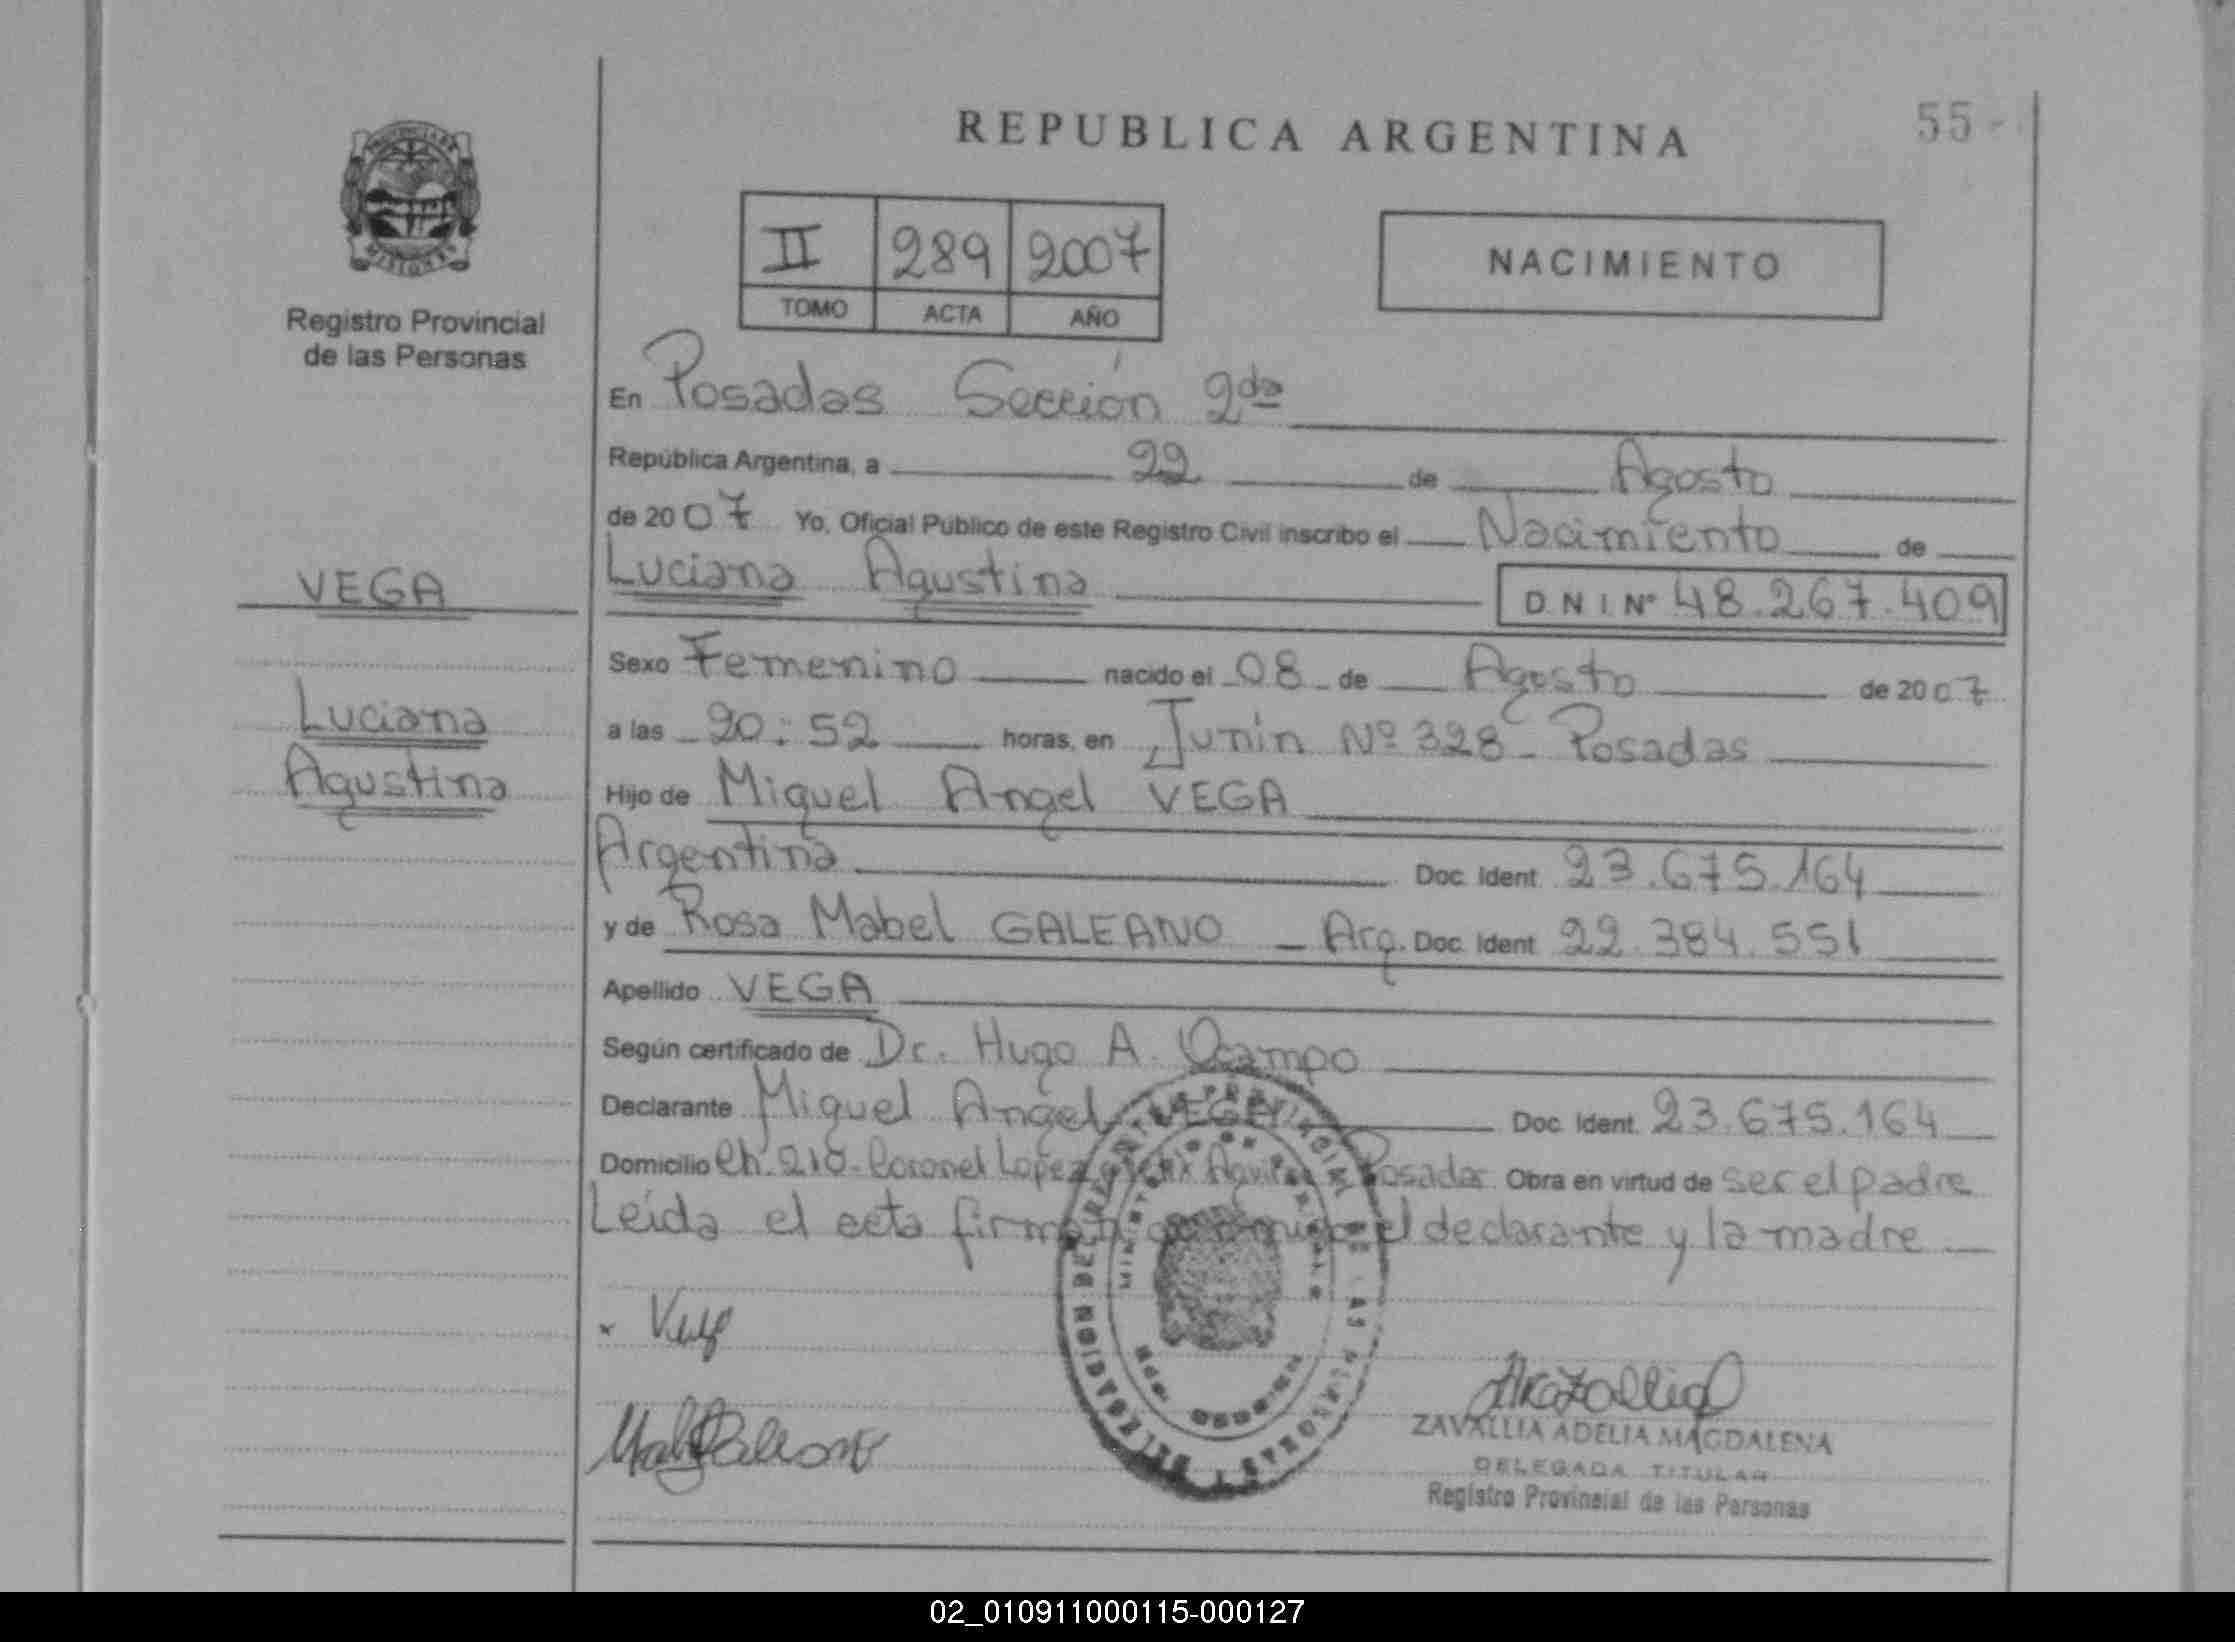 REPUBLICA ARGENTINA
55-
PROVINCIA DE
MISIONES
Registro Provincial
de las Personas
II 289 2007
TOMO ACTA AÑO
NACIMIENTO
En Posadas Sección 2da
República Argentina, a 22 de Agosto
de 2007 Yo, Oficial Público de este Registro Civil inscribo el Nacimiento de
Luciana Agustina D.N.I. Nº 48.267.409
VEGA
Luciana
Agustina
Sexo Femenino nacido el 08 de Agosto de 2007
a las 20:52 horas, en Junin Nº 328 - Posadas
Hijo de Miguel Angel VEGA
Argentina Doc. Ident. 23.675.164
y de Rosa Mabel GALEANO - Arg. Doc. Ident. 22.384.551
Apellido VEGA
Según certificado de Dr. Hugo A. Ocampo
Declarante Miguel Angel VEGA Doc. Ident. 23.675.164
Domicilio Ch. 210 - Coronel Lopez Posadas Obra en virtud de ser el padre
Leida el acta firman el declarante y la madre
ZAVALLIA ADELIA MAGDALENA
DELEGADA TITULAR
Registro Provincial de las Personas
02_010911000115-000127